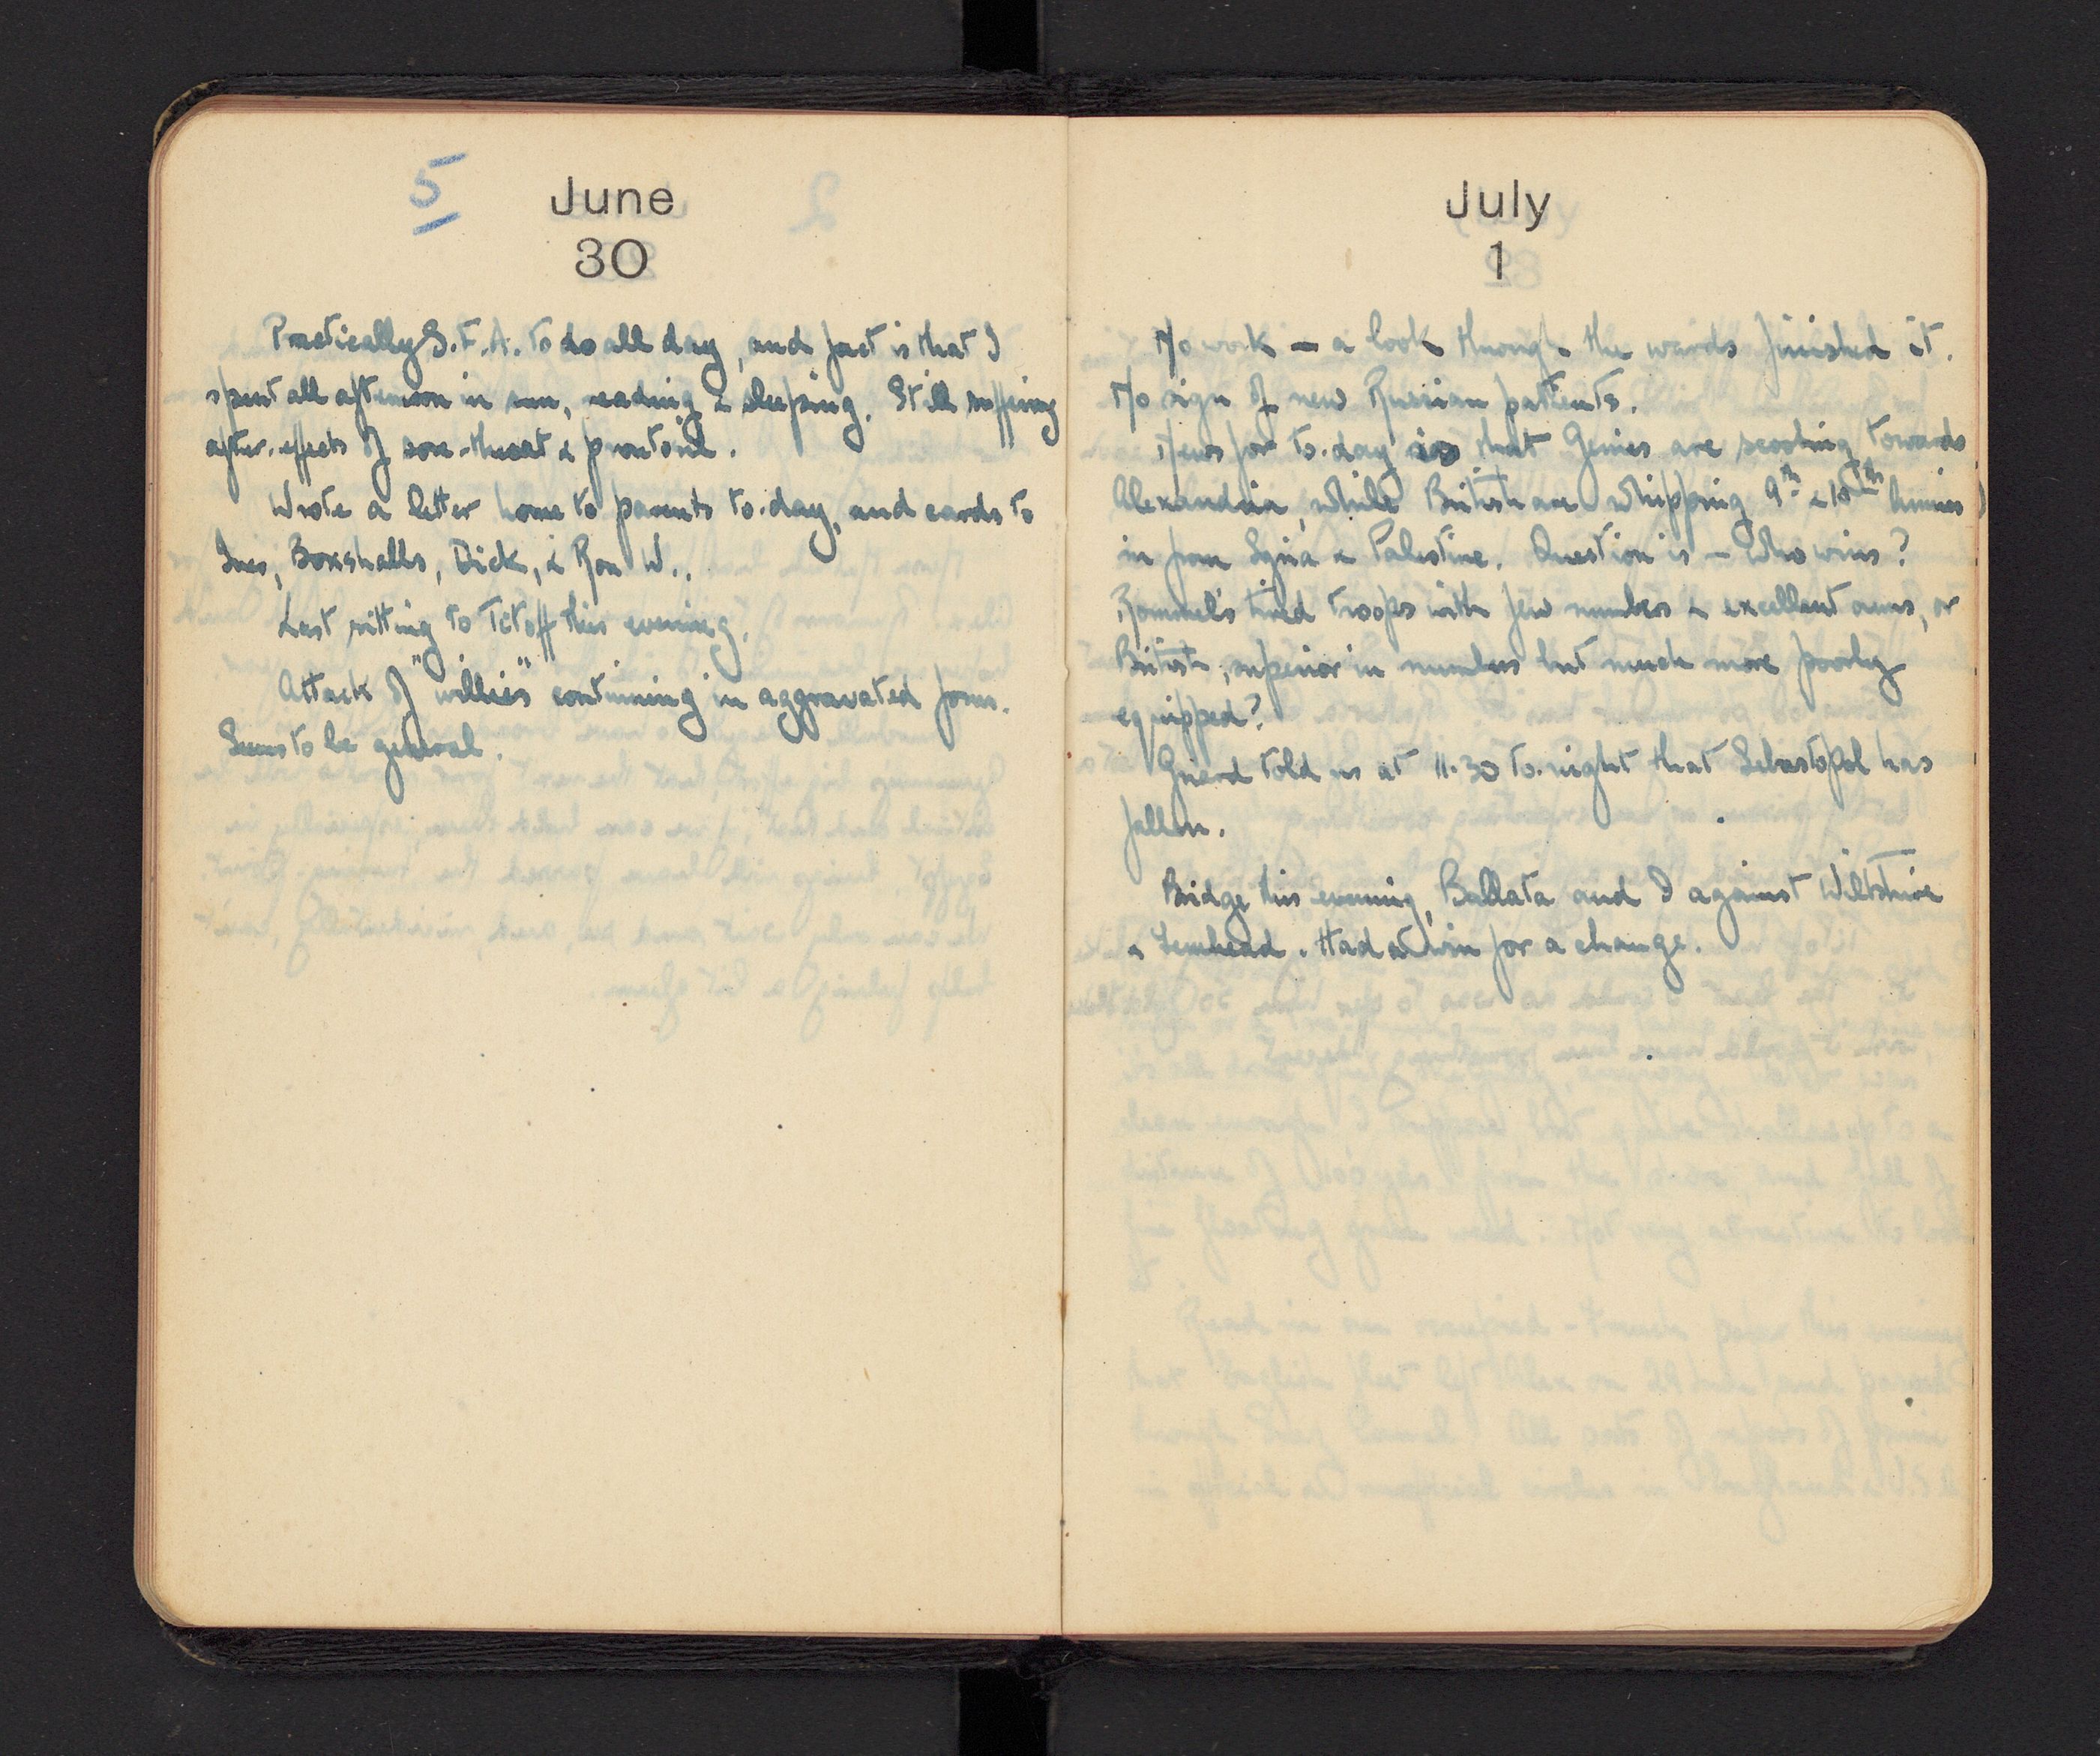 5
June
30
Practically S.F.A. to do all day, and fact is that I
spent all afternoon in sun, reading & sleeping. Still suffering
after-effects of sore-throat & prontosil.
Wrote a letter home to parents to-day, and cards to
Ines, Boxshalls, Dick, & Ron W..
Last sitting to Titoff this evening.
Attack of "willies" continuing in aggravated form.
Seems to be general.
July
1
No work - a look through the wards finished it.
No sign of new Russian patients.
News for to-day is that Gerries are scooting towards
Alexandria, while British are whipping 9th & 10th Armies
in from Syria & Palestine. Question is - Who wins?
Rommel's tired troops with few numbers & excellent arms, or
British, superior in numbers but much more poorly
equipped?
told us at 11.30 to-night that Sebastopol has
fallen.
Bridge this evening, Ballata and I against Wiltshire
& . Had a win for a change.